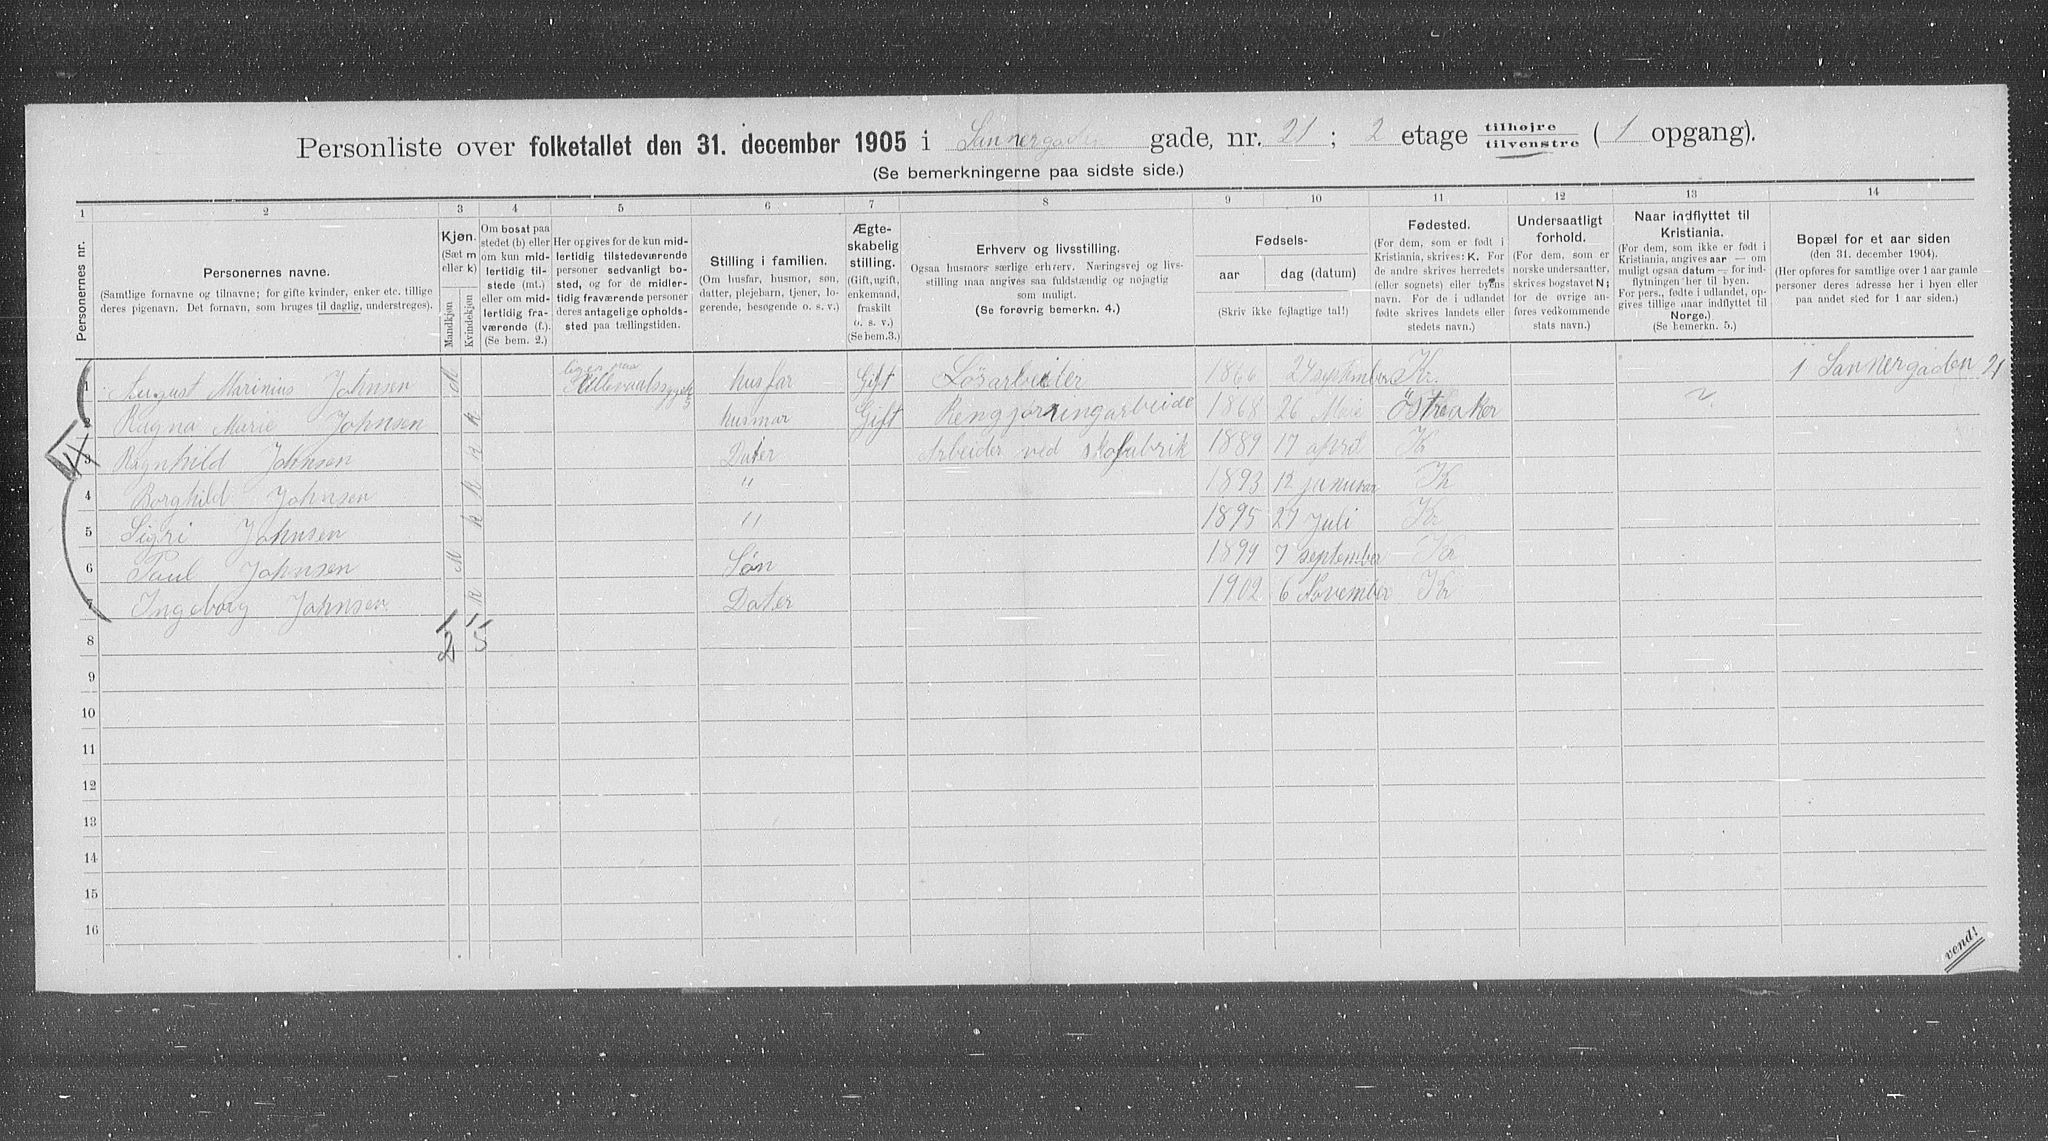 Personliste over folketallet den 31. december 1905 i Sannergaden gade, nr. 21; 2 etage tilhøjre tilvenstre (1 opgang).
(Se bemerkningerne paa sidste side.)
1 2 3 4 5 6 7 8 9 10 11 12 13 14
Personernes nr.
Personernes navne.
(Samtlige fornavne og tilnavne; for gifte kvinder, enker etc. tillige
deres pigenavn. Det fornavn, som bruges til daglig, understreges).
Kjøn.
(Sæt m
eller k)
Mandkjøn
Kvindekjøn
Om bosat paa
stedet (b) eller
om kun mid-
lertidig til-
stede (mt.)
eller om mid-
lertidig fra-
værende (f.).
(Se bem. 2.)
Her opgives for de kun mid-
lertidig tilstedeværende
personer sedvanlig bo-
sted, og for de midler-
tidig fraværende personer
deres antagelige opholds-
sted paa tællingstiden.
Stilling i familien.
(Om husfar, husmor, søn,
datter, plejebarn, tjener, lo-
gerende, besøgende o. s. v.)
Ægte-
skabelig
stilling.
(Gift, ugift,
enkemand,
fraskilt
o. s. v.)
(Se bem.3.)
Erhverv og livsstilling.
Ogsaa husmors særlige erhverv. Næringsvej og livs-
stilling maa angives saa fuldstændig og nøjagtig
som muligt.
(Se forøvrig bemerkn. 4.)
Fødsels-
aar
dag (datum)
(Skriv ikke fejlagtige tal!)
Fødested.
(For dem, som er født i
Kristiania, skrives: K. For
de andre skrives herredets
(eller sognets) eller byens
navn. For de i udlandet
fødte skrives landets eller
stedets navn.)
Undersaatligt
forhold.
(For dem, som er
norske undersaatter,
skrives bogstavet N;
for de øvrige an-
føres vedkommende
stats navn.)
Naar indflyttet til
Kristiania.
(For dem, som ikke er født i
Kristiania, angives aar — om
muligt ogsaa datum — for ind-
flytningen her til byen.
For pers., fødte i udlandet, op-
gives tillige naar indflyttet til
Norge.)
(Se bemerkn. 5.)
Bopæl for et aar siden
(den 31. december 1904).
(Her opføres for samtlige over 1 aar gamle
personer deres adresse her i byen eller
paa andet sted for 1 aar siden.)
1 August Marinius Johnsen M Ullevaalssyge husfar Gift Lösarbeider 1866 24 september Kr. 1 Sannergaden 21
2 Ragna Marie Johnsen k husmor Gift Rengjørringarbeide 1868 26 Maie Östreaker
3 Ragnhild Johnsen k Dater Arbeider ved skofabrik 1889 17 april Kr
4 Borghild Johnsen k " 1893 12 januar Kr
5 Sigri Johnsen k " 1895 27 Juli Kr
6 Paul Johnsen M Søn 1899 7 september Kr
7 Ingeborg Johnsen k Dater 1902 6 November Kr
8 2 5
9
10
11
12
13
14
15
16
vend!